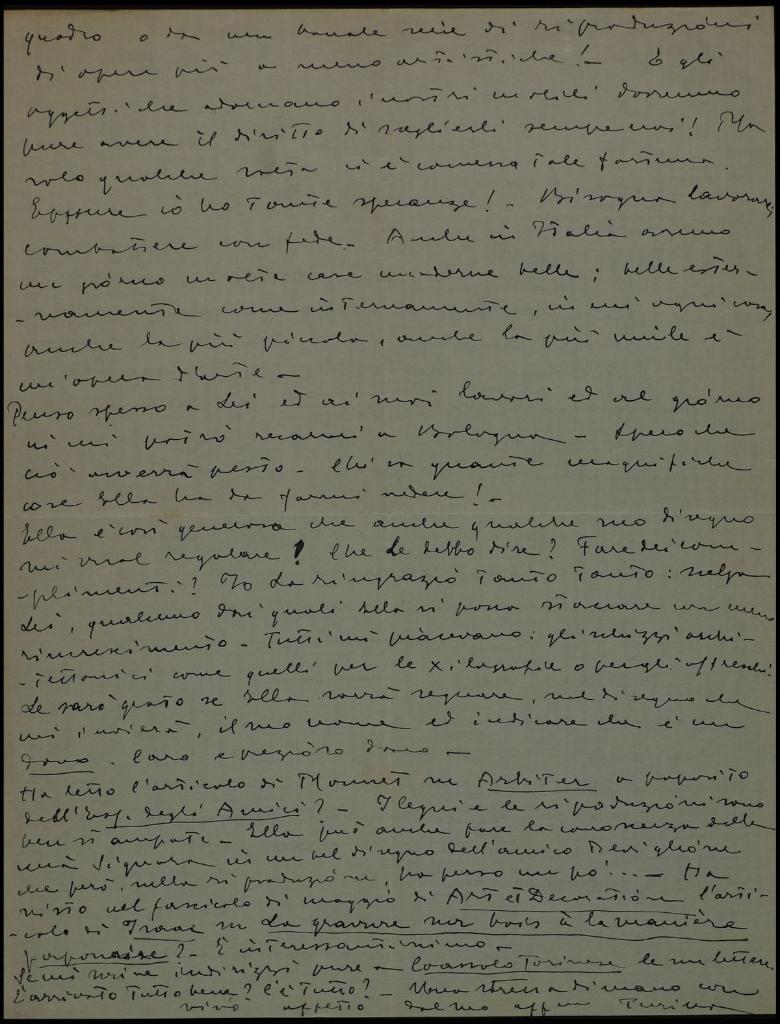 quadro o da una banale serie di riproduzioni
di opere più o meno artistiche! - E gli
oggetti che adornano i nostri mobili dovremmo
pure avere il diritto di sceglierli sempre noi! Ma
solo qualche volta ci è concessa tale fortuna.
Eppure io ho tante speranze! - Bisogna lavorare,
combattere con fede. Anche in Italia avremo
un giorno molte case moderne belle; belle ester-
-namente come internamente, in cui ogni cosa,
anche la più piccola, anche la più umile è
un'opera d'arte -
Penso spesso a Lei ed ai suoi lavori ed al giorno
in cui potrò recarmi a Bologna - Spero che
ciò avverrà presto - Chi sa quante magnifiche
cose Ella ha da farmi vedere! -
Ella è così generosa che anche qualche suo disegno
mi vuol regalare! Che Le debbo dire? Fare dei com-
-plimenti? Io La ringrazio tanto tanto: scelga
Lei, qualcuno dai quali Ella si possa staccare con meno
rincrescimento - Tutti mi piacevano: gli schizzi archi-
-tettonici come quelli per le xilografie o per gli affreschi.
Le sarò grato se Ella vorrà segnare, nel disegno che
mi invierà, il mio nome ed indicare che è un
dono. Caro e prezioso dono -
Ha letto l'articolo di Monnet su Arbiter a proposito
dell'Esp. degli Amici? - I legni e le riproduzioni sono
ben stampate - Ella può anche fare la conoscenza della
mia Signora in un bel disegno dell'amico Deviglione
che però, nella riproduzione, ha perso un po'... - Ha
visto nel fascicolo di maggio di Art et Décoration l'arti-
-colo di su La gravure sur bois à la manière
japonaise? - È interessantissimo -
Se mi scrive indirizzi pure a Coassolo Torinese le sue lettere.
È arrivato tutto bene? C'è tutto? - Una stretta di mano con
vivo affetto dal suo aff.mo